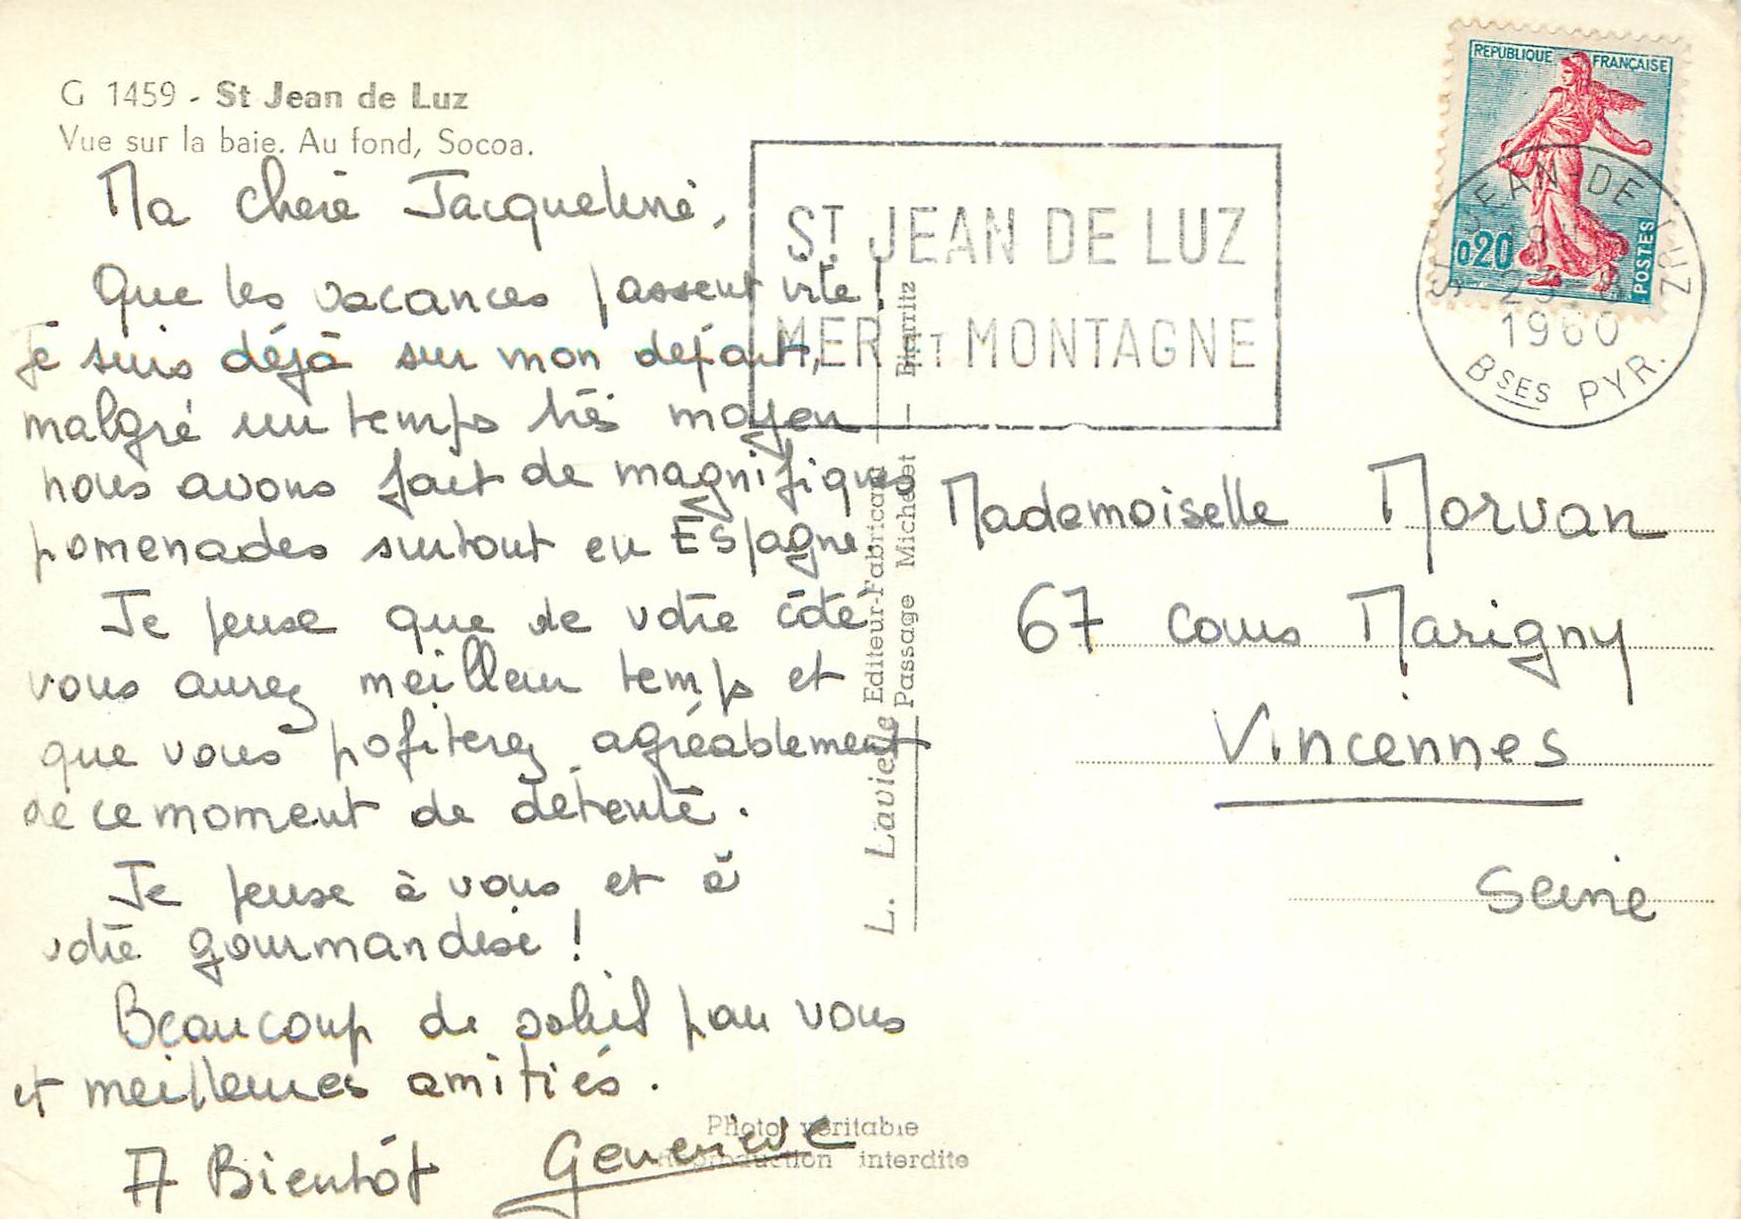 G 1459 - St Jean de Luz
Vue sur la baie. Au fond, Socoa.
Ma chère Jacqueline,
Que les vacances passent vite !
Je suis déjà sur mon départ,
malgré un temps très moyen
nous avons fait de magnifiques
promenades surtout en Espagne.
Je pense que de votre côté
vous aurez meilleur temps et
que vous profiterez agréablement
de ce moment de détente.
Je pense à vous et à
votre gourmandise !
Beaucoup de soleil pour vous
et meilleures amitiés.
A Bientôt Geneviève
Photo véritable
Reproduction interdite
L. Lavielle Editeur-Fabricant
Passage Michelet — Biarritz
ST JEAN DE LUZ
MER ET MONTAGNE
REPUBLIQUE FRANÇAISE
0,20
POSTES
ST JEAN-DE-LUZ
1960
BSES PYR.
Mademoiselle Morvan
67 cours Marigny
Vincennes
Seine